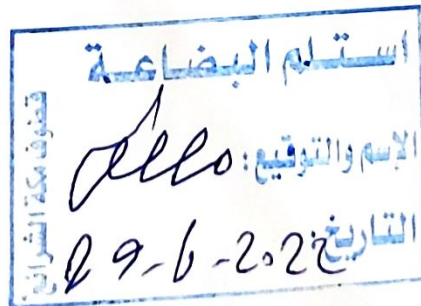 استلم البضاعة
الإسم والتوقيع:
التاريخ: 29-6-2022
قطوف مكة الشرائع